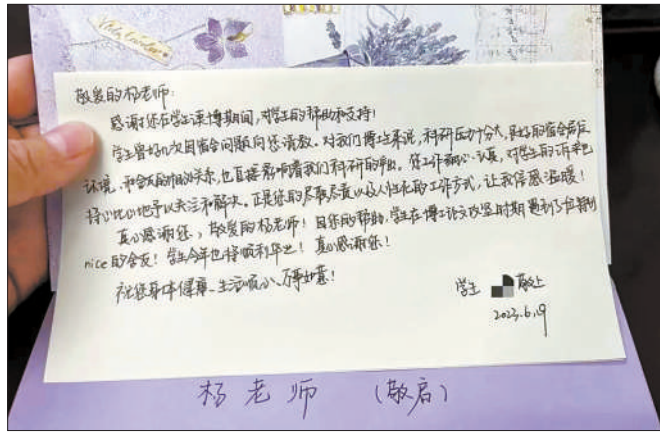 敬爱的杨老师:
感谢您在学生读博期间,对学生的帮助和支持!
学生曾好几次因宿舍问题向您请教。对我们博士生来说,科研压力十分大,良好的宿舍居住
环境、和舍友的相处关系,也直接影响着我们科研的产出。您工作细心、认真,对学生的诉求也
将心比心地予以关注和解决。正是您的尽职尽责以及人性化的工作方式,让我倍感温暖!
真心感谢您,敬爱的杨老师!因您的帮助,学生在博士论文攻坚时期遇到了个特别
nice的舍友!学生今年也将顺利毕业!真心感谢您!
祝您身体健康、生活顺心、万事如意!
学生 敬上
2023.6.19
杨老师 (敬启)